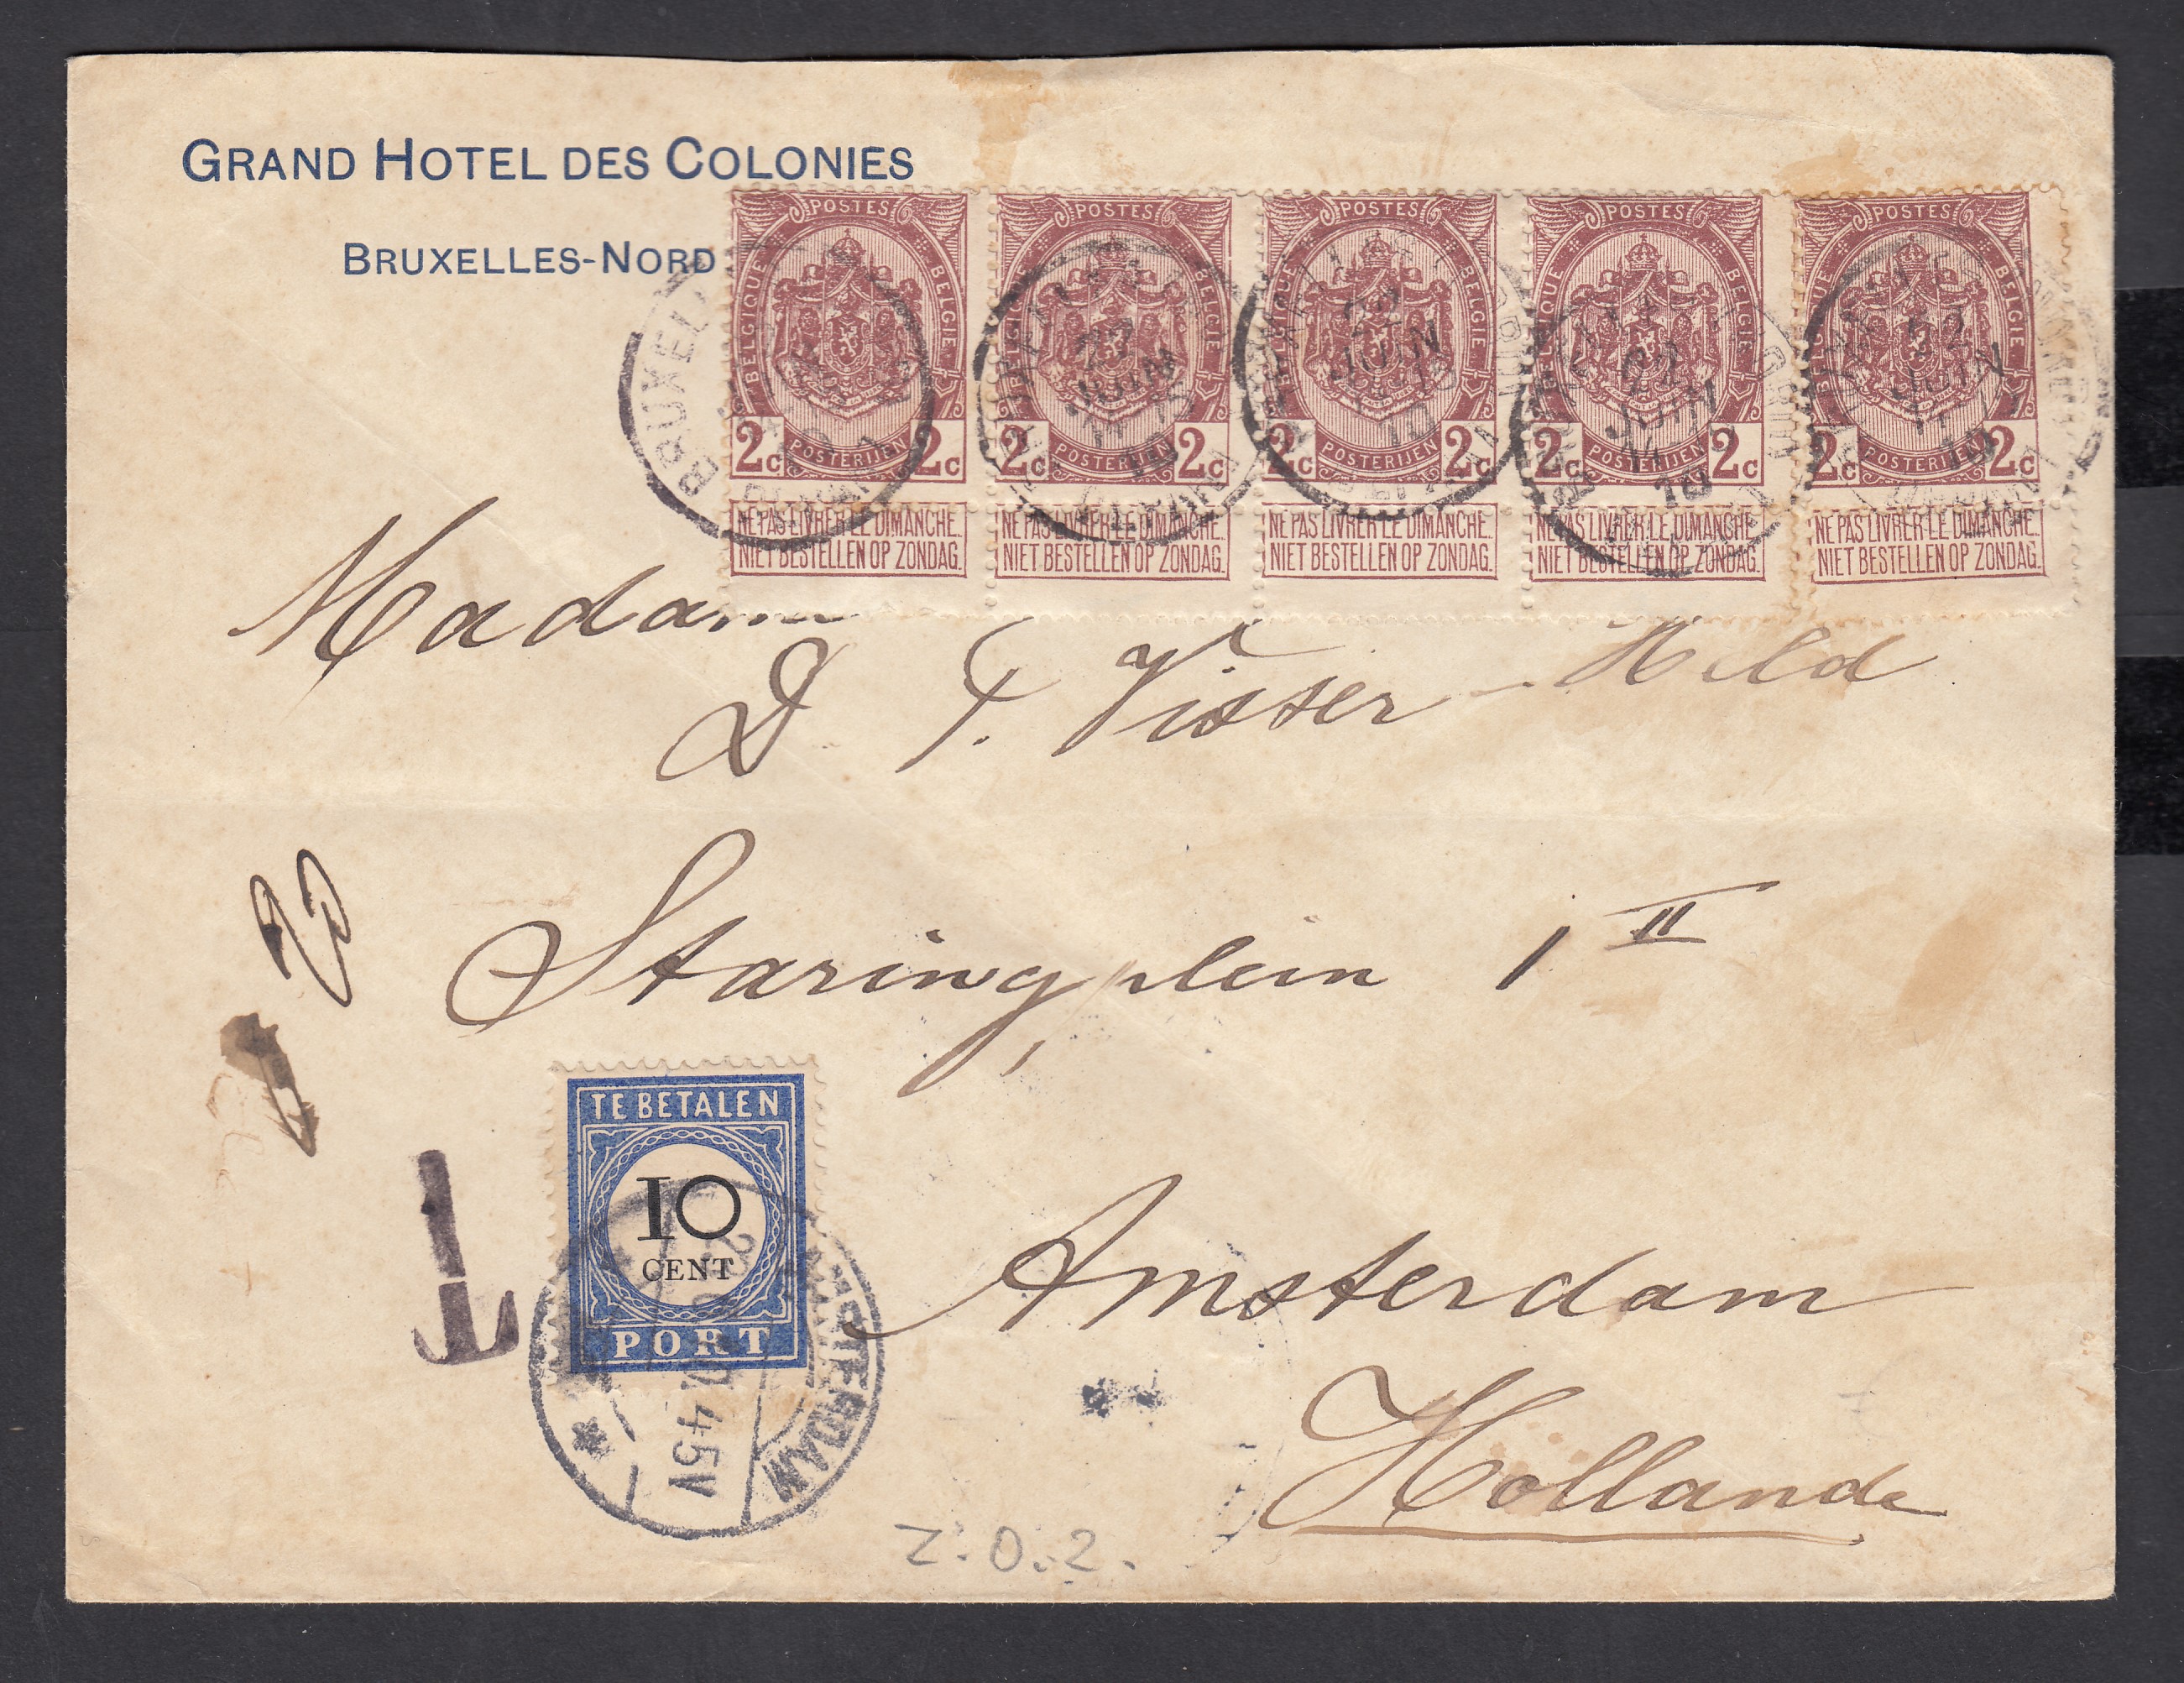 GRAND HOTEL DES COLONIES
BRUXELLES-NORD
POSTES POSTES POSTES POSTES POSTES
BELGIQUE BELGIE BELGIQUE BELGIE BELGIQUE BELGIE BELGIQUE BELGIE BELGIQUE BELGIE
2c 2c 2c 2c 2c 2c 2c 2c 2c 2c
POSTERIJEN POSTERIJEN POSTERIJEN POSTERIJEN POSTERIJEN
NE PAS LIVRER LE DIMANCHE. NE PAS LIVRER LE DIMANCHE. NE PAS LIVRER LE DIMANCHE. NE PAS LIVRER LE DIMANCHE. NE PAS LIVRER LE DIMANCHE.
NIET BESTELLEN OP ZONDAG. NIET BESTELLEN OP ZONDAG. NIET BESTELLEN OP ZONDAG. NIET BESTELLEN OP ZONDAG. NIET BESTELLEN OP ZONDAG.
22
JUIN
10
Madam
D T. Visser - Held
Staringplein 1 II
TE BETALEN
10
CENT
PORT
T
AMSTERDAM
45V
Amsterdam
Hollande
Z.O.2.